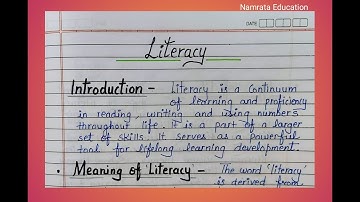 Namrata Education
DATE
Literacy
Introduction - Literacy is a Continuum
of learning and proficiency
in reading, writing and using numbers
throughout life. It is a part of a larger
set of skills. It serves as a powerful
tool for lifelong learning development.
• Meaning of Literacy - The word 'literacy'
is derived from